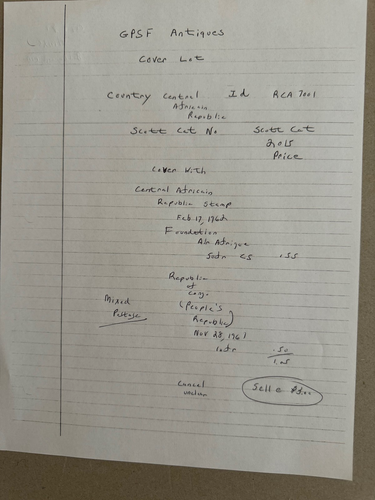 GPSF Antiques
Cover Lot
Country Central Id RCA 7001
African
Republic
Scott Cat No Scott Cat
2015
Price
Cover With
Central African
Republic Stamp
Feb. 17, 1962
Foundation
Air Afrique
50fr C5 .55
Republic
of
Congo
Mixed (People's
Postage Republic)
Nov 28, 1961
.50
1.05
Cancel
unclear
Sell @